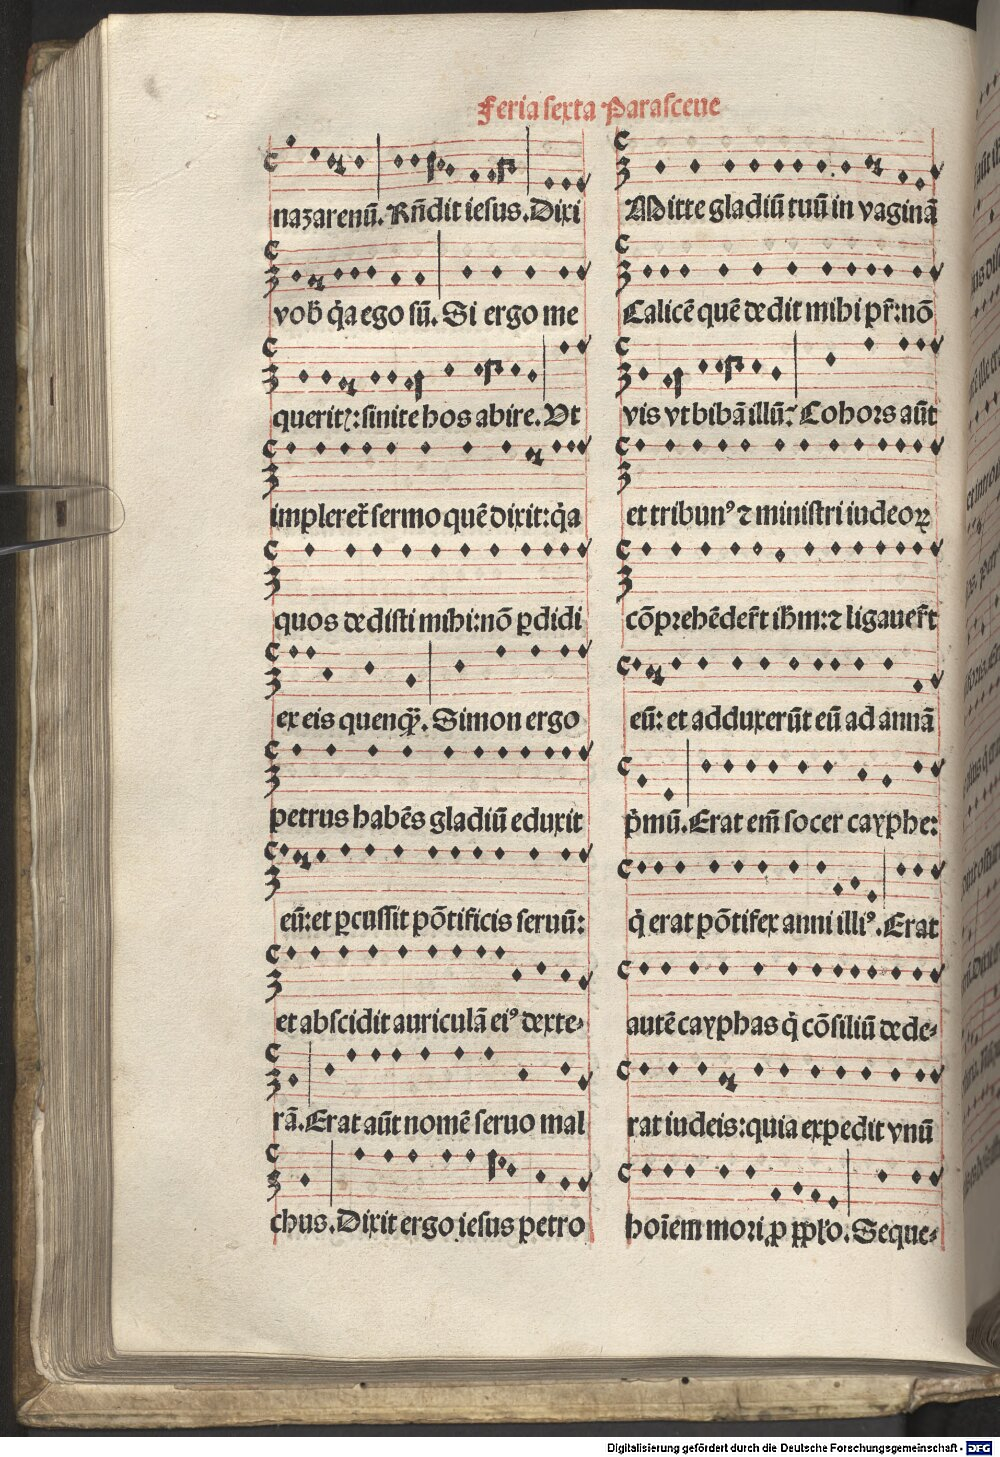 Feria sexta Parasceue
nazarenū. Rn̄dit iesus. Dixi
vob̄ q̇a ego sū. Si ergo me
querit᷑: sinite hos abire. Vt
impleret᷑ sermo quē dixit: q̇a
quos dedisti mihi: nō ꝑdidi
ex eis quenqȝ. Simon ergo
petrus habēs gladiū eduxit
eū: et ꝑcussit pōtificis seruū:
et abscidit auriculā eiꝰ dexte⸗
rā. Erat aūt nomē seruo mal
chus. Dixit ergo iesus petro
Mitte gladiū tuū in vaginā
Calicē quē dedit mihi pr̄: nō
vis vt bibā illū? Cohors aūt
et tribunꝰ ⁊ ministri iudeoꝝ
cōprehēder̄t ih̄m: ⁊ ligauer̄t
eū: et adduxerūt eū ad annā
ṗmū. Erat em̄ socer cayphe:
q̇ erat pōtifex anni illiꝰ. Erat
autē cayphas q̇ cōsiliū dede⸗
rat iudeis: quia expedit vnū
hoīem mori ꝓ pp̄lo. Seque⸗
Digitalisierung gefördert durch die Deutsche Forschungsgemeinschaft - DFG